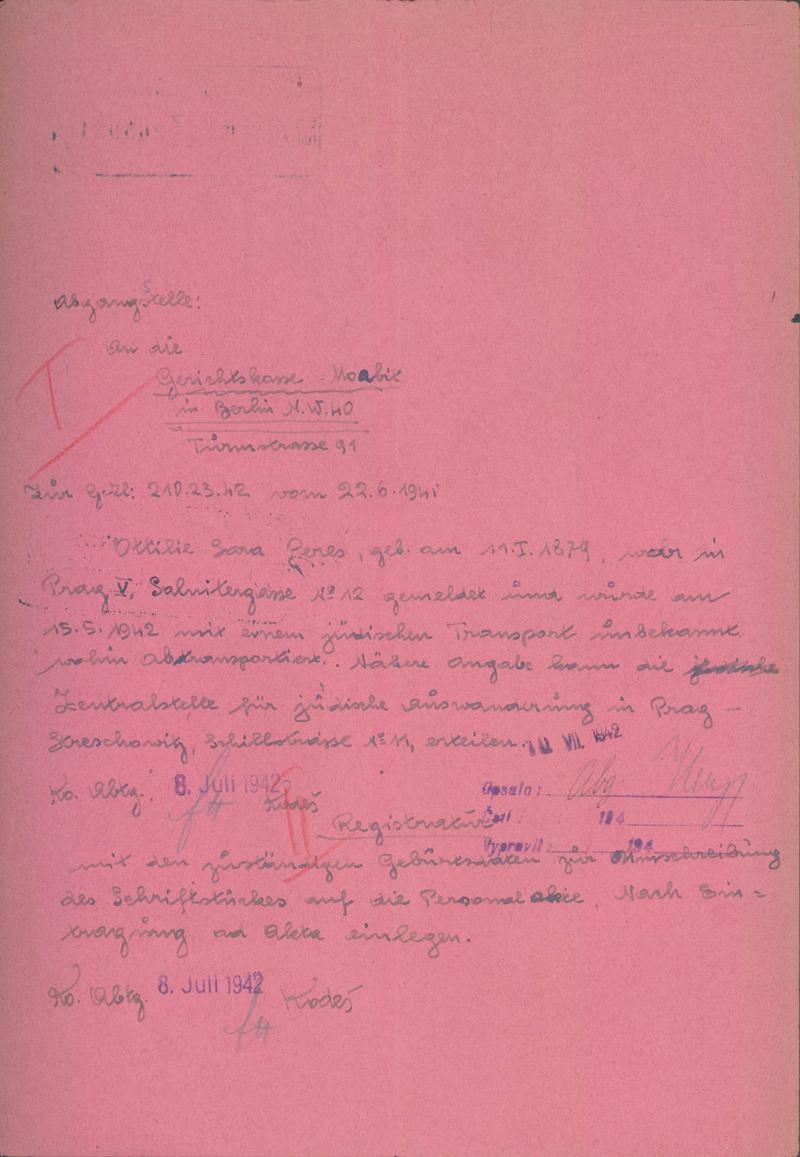 Abgangstelle:
An die
Gerichtskasse - Moabit
in Berlin N.W. 40
Turmstrasse 91
I
Zur G.Zl: 210.23.42 vom 22.6.1941
Ottilie Sara Peres, geb. am 11.I.1879, war in
Prag V, Salnitergasse No 12 gemeldet und wurde am
15.5.1942 mit einem jüdischen Transport unbekannt
wohin abtransportiert. Nähere Angabe kann die
Zentralstelle für jüdische Auswanderung in Prag -
Streschowitz, Schillstrasse No 11, erteilen.
VII. 1942
Ko. Abtg. 8. Juli 1942 Kodeš
Opsala:
Četl: 194
Vypravil: 194
II
Registratur
mit den zuständigen Geburtsdaten zur Umschreibung
des Schriftstückes auf die Personalakte. Nach Ein=
tragung ad Akta einlegen.
Ko. Abtg. 8. Juli 1942 Kodeš